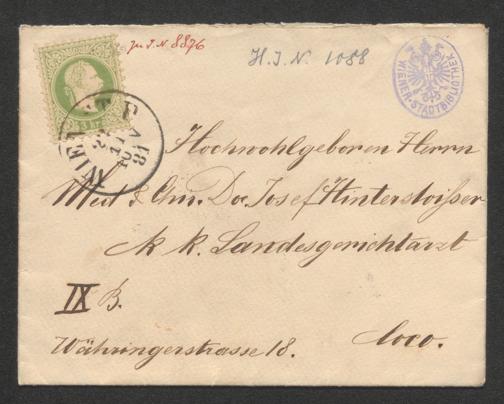 zu I.N. 8876
H.I.N. 1088
WIENER-STADTBIBLIOTHEK
3 Kr
WIEN
Hochwohlgeboren Herrn
Med & Chir. Doc Josef Hinterstoißer
k k. Landesgerichtarzt
IX B.
Währingerstrasse 18. loco.